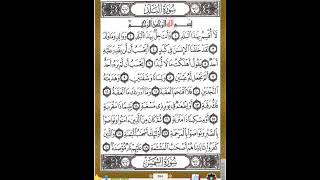 سُورَةُ الْبَلَدِ
بِسْمِ اللَّهِ الرَّحْمَٰنِ الرَّحِيمِ
لَا أُقْسِمُ بِهَٰذَا الْبَلَدِ ۝١ وَأَنْتَ حِلٌّ بِهَٰذَا الْبَلَدِ ۝٢ وَوَالِدٍ وَمَا وَلَدَ
۝٣ لَقَدْ خَلَقْنَا الْإِنْسَانَ فِي كَبَدٍ ۝٤ أَيَحْسَبُ أَنْ لَنْ يَقْدِرَ عَلَيْهِ
أَحَدٌ ۝٥ يَقُولُ أَهْلَكْتُ مَالًا لُبَدًا ۝٦ أَيَحْسَبُ أَنْ لَمْ يَرَهُ أَحَدٌ
۝٧ أَلَمْ نَجْعَلْ لَهُ عَيْنَيْنِ ۝٨ وَلِسَانًا وَشَفَتَيْنِ ۝٩ وَهَدَيْنَاهُ
النَّجْدَيْنِ ۝١٠ فَلَا اقْتَحَمَ الْعَقَبَةَ ۝١١ وَمَا أَدْرَاكَ مَا الْعَقَبَةُ ۝١٢
فَكُّ رَقَبَةٍ ۝١٣ أَوْ إِطْعَامٌ فِي يَوْمٍ ذِي مَسْغَبَةٍ ۝١٤ يَتِيمًا ذَا مَقْرَبَةٍ
۝١٥ أَوْ مِسْكِينًا ذَا مَتْرَبَةٍ ۝١٦ ثُمَّ كَانَ مِنَ الَّذِينَ آمَنُوا وَتَوَاصَوْا
بِالصَّبْرِ وَتَوَاصَوْا بِالْمَرْحَمَةِ ۝١٧ أُولَٰئِكَ أَصْحَابُ الْمَيْمَنَةِ ۝١٨ وَالَّذِينَ
كَفَرُوا بِآيَاتِنَا هُمْ أَصْحَابُ الْمَشْأَمَةِ ۝١٩ عَلَيْهِمْ نَارٌ مُؤْصَدَةٌ ۝٢٠
سُورَةُ الشَّمْسِ